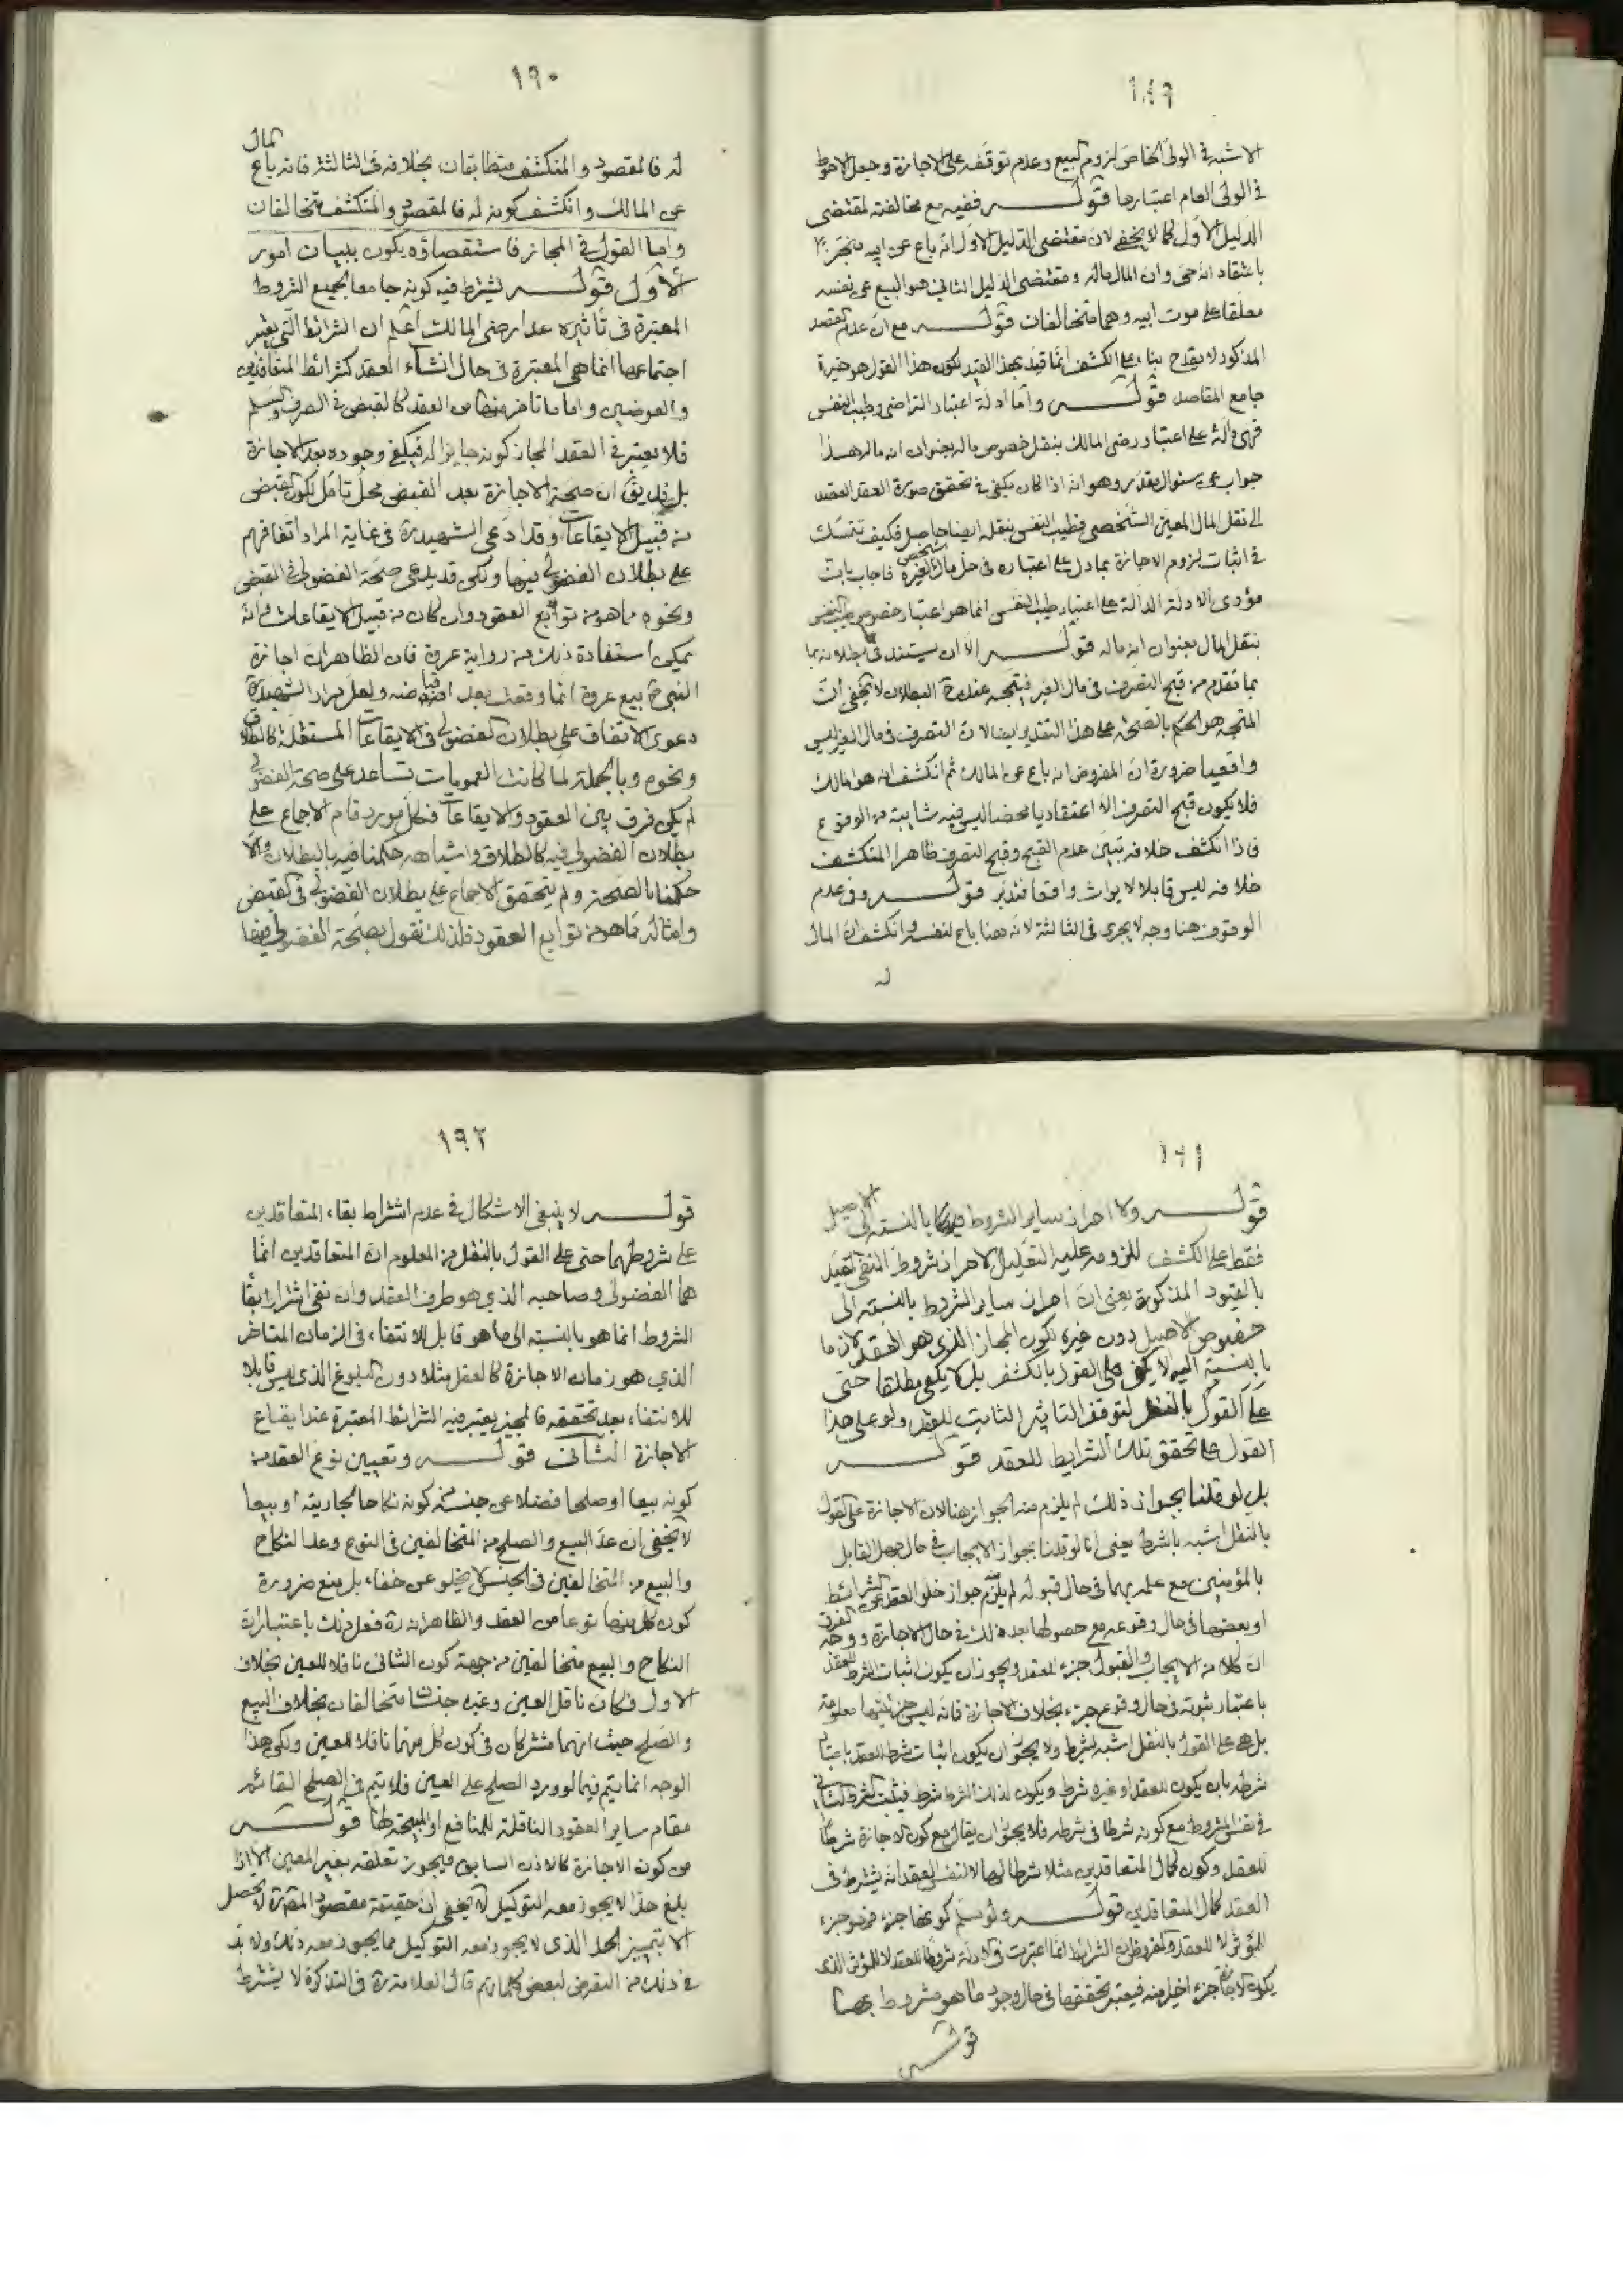 ١٨٩
الاشبه في الولي الخاص لزوم البيع وعدم توقفه على الاجازة وجعل الاحوط
في الولي العام اعتبارها قوله ففيه مع مخالفته لمقتضى
الدليل الاول كما لا يخفى لان مقتضى الدليل الاول انه باع عن ابيه منجزا
باعتقاد انه حي وان المال ماله ومقتضى الدليل الثاني هو البيع عن نفسه
معلقا على موت ابيه وهما متخالفان قوله مع ان عدم القصد
المذكور لا يقدح بناء على الكشف انما قيد بهذا القيد لكون هذا القول هو خيرة
جامع المقاصد قوله واما ادلة اعتبار التراضي وطيب النفس
فهي دالة على اعتبار رضى المالك بنقل خصوص ماله بعنوان انه ماله هذا
جواب عن سئوال مقدر وهو انه اذا كان يكفي في تحقق صورة العقد القصد
الى نقل المال المعين الشخصي فطيب النفس بنقله ايضا حاصل فكيف تتمسك
في اثبات لزوم الاجازة بما دل على اعتباره في حل مال شخص لغيره فاجاب بان
مؤدى الادلة الدالة على اعتبار طيب النفس انما هو اعتبار خصوص طيب النفس
بنقل المال بعنوان انه ماله قوله الا ان يستند في بطلانه بما
بما تقدم من قبح التصرف في مال الغير فيتجه عنده البطلان لا يخفى ان
المتجه هو الحكم بالصحة على هذا التقدير ايضا لان التصرف في مال الغير ليس
واقعيا ضرورة ان المفروض انه باع عن المالك ثم انكشف انه هو المالك
فلا يكون قبح التصرف الا اعتقاديا محضا ليس فيه شايبة من الوقوع
فاذا انكشف خلافه تبين عدم القبح وقبح التصرف ظاهرا المنكشف
خلافه ليس قابلا لايراث واقعا فتدبر قوله وفي عدم
الوقوف هنا وجه لا يجري في الثالثة لانه هنا باع لنفسه وانكشف ان المال
له
١٩٠
له فالمقصود والمنكشف متطابقان بخلافه في الثالثة فانه باع مال
عن المالك وانكشف كونه له فالمقصود والمنكشف متخالفان
واما القول في المجاز فاستقصاؤه يكون ببيان امور
الاول قوله يشترط فيه كونه جامعا لجميع الشروط
المعتبرة في تأثيره عدا رضى المالك اعلم ان الشرائط التي يعتبر
اجتماعها انما هي المعتبرة في حال انشاء العقد كشرائط المتعاقدين
والعوضين واما ما تأخر منها من العقد كالقبض في الصرف والسلم
فلا يعتبر في العقد المجاز كونه حايزا له فيكفي وجوده بعد الاجازة
بل قد يق ان صحة الاجازة بعد القبض محل تامل لكون القبض
من قبيل الايقاعات وقد ادعى الشهيد ره في غاية المراد اتفاقهم
على بطلان الفضولي فيها ولكن قد يدعى صحة الفضولي في القبض
ونحوه مما هو من توابع العقود وان كان من قبيل الايقاعات فانه
يمكن استفادة ذلك من رواية عروة فان الظاهر ان اجازة
النبي ص بيع عروة انما وقعت بعد اقباضه ولعل مراد الشهيد ره
دعوى الاتفاق على بطلان الفضولي في الايقاعات المستقلة كالطلاق
ونحوه وبالجملة لما كانت العمومات تساعد على صحة الفضولي
لم يكن فرق بين العقود والايقاعات فكل مورد قام الاجماع على
بطلان الفضولي فيه كالطلاق واشباهه حكمنا فيه بالبطلان والا
حكمنا بالصحة ولم يتحقق الاجماع على بطلان الفضولي في القبض
وامثاله مما هو من توابع العقود فلذلك نقول بصحة الفضولي فيها
١٩١
قوله ولا احراز ساير الشروط بالنسبة الى الاصيل
فقط على الكشف للزومه عليه التعليل لاحراز شروط النفي لتقيد
بالقيود المذكورة يعني ان احراز ساير الشروط بالنسبة الى
خصوص الاصيل دون غيره لكون المجاز الذي هو العقد لازما
بالنسبة اليه لا يكفي على القول بالكشف بل لا يكفي مطلقا حتى
على القول بالنقل لتوقف التاثير الثابت للعقد ولو على هذا
القول على تحقق تلك الشرايط للعقد قوله
بل لو قلنا بجواز ذلك لم يلزم منه الجواز هنا لان الاجازة على القول
بالنقل اشبه بالشرط يعني انا لو قلنا بجواز الايجاب في حال جهل القابل
بالمؤمنين مع علمه بهما في حال قبوله لم يلزم جواز خلو العقد عن الشرائط
او بعضها في حال وقوعه مع حصولها بعد ذلك في حال الاجازة ووجه الفرق
ان كلا من الايجاب والقبول جزء للعقد ويجوز ان يكون اثبات الشرط للعقد
باعتبار ثبوته في حال وقوع جزء بخلاف الاجازة فانه ليس جزئيتها معلومة
بل هي على القول بالنقل اشبه بالشرط ولا يجوز ان يكون اثبات شرط للعقد باعتبار
شرطه بان يكون للعقد او غيره شرط ويكون لذلك الشرط شرط فيثبت الشرط الثاني
في نفس المشروط مع كونه شرطا في شرطه فلا يجوز ان يقال مع كون الاجازة شرطا
للعقد وكون كمال المتعاقدين مثلا شرطا لها لا لنفس العقد انه يشترط في
العقد كمال المتعاقدين قوله ولو سلم كونها جزء فهو جزء
للمؤثر لا للعقد والمفروض ان الشرائط انما اعتبرت في الادلة شروطا للعقد لا للمؤثر الذي
يكون الاجازة جزء اخيرا منه فيعتبر تحققها في حال وجود ما هو مشروط بها
قوله
١٩٢
قوله لا ينبغي الاشكال في عدم اشتراط بقاء المتعاقدين
على شروطهما حتى على القول بالنقل من المعلوم ان المتعاقدين انما
هما الفضولي وصاحبه الذي هو طرف العقد وان نفي اشتراط بقاء
الشروط انما هو بالنسبة الى ما هو قابل للانتفاء في الزمان المتاخر
الذي هو زمان الاجازة كالعقل مثلا دون البلوغ الذي ليس قابلا
للانتفاء بعد تحققه فالمجيز يعتبر فيه الشرائط المعتبرة عند ايقاع
الاجازة الثاني قوله وتعيين نوع العقد من
كونه بيعا او صلحا فضلا عن جنسه من كونه نكاحا لجاريته او بيعا
لا يخفى ان عد البيع والصلح من المتخالفين في النوع وعد النكاح
والبيع من المتخالفين في الجنس لا يخلو عن خفاء بل منع ضرورة
كون كل منها نوعا من العقد والظاهر انه ره فعل ذلك باعتبار ان
النكاح والبيع متخالفين من جهة كون الثاني ناقلا للعين بخلاف
الاول فكان ناقل العين وغيره جنسان متخالفان بخلاف البيع
والصلح حيث انهما مشتركان في كون كل منهما ناقلا للعين ولكن هذا
الوجه انما يتم فيما لو ورد الصلح على العين فلا يتم في الصلح القائم
مقام ساير العقود الناقلة للمنافع او المبيحة لها قوله
من كون الاجازة كالاذن السابق فيجوز تعلقه بغير المعين الا اذا
بلغ حدا لا يجوز معه التوكيل لا يخفى ان حقيقة مقصود المص ره لا يحصل
الا بتمييز الحد الذي لا يجوز معه التوكيل مما يجوز معه ذلك ولا بد
في ذلك من التعرض لبعض كلماتهم قال العلامة ره في التذكرة لا يشترط